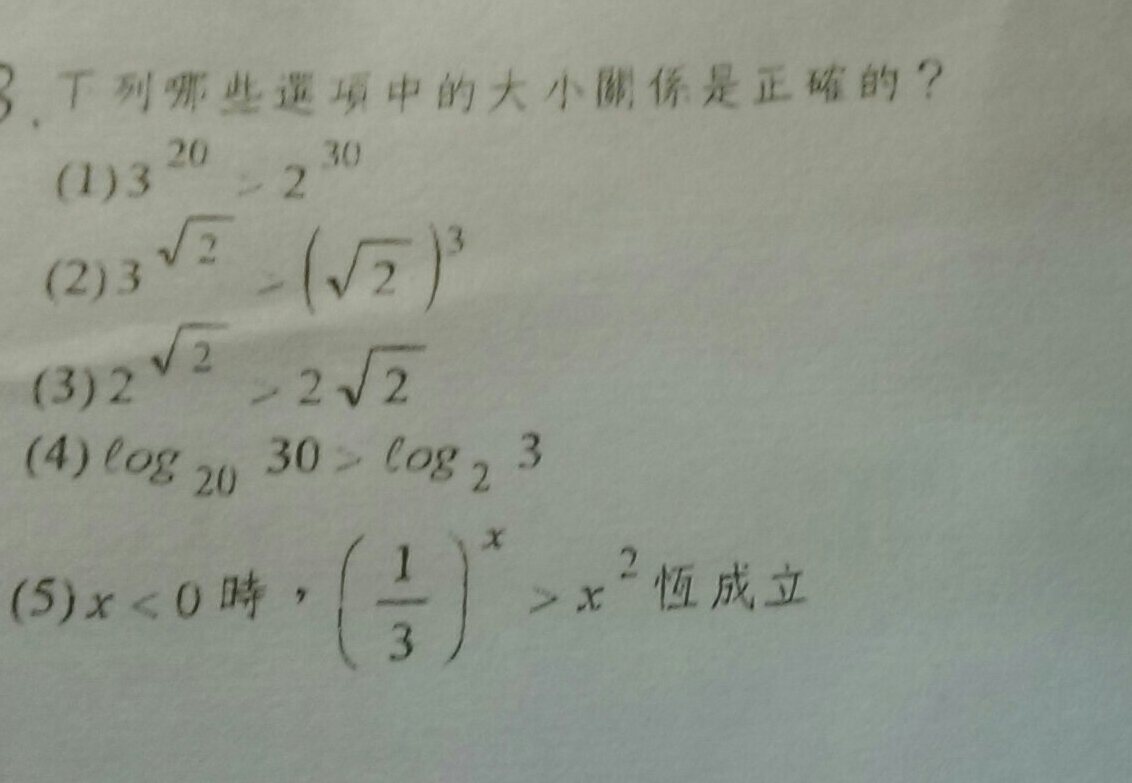 3. 下列哪些選項中的大小關係是正確的？
(1) 3^20 > 2^30
(2) 3^√2 > (√2)^3
(3) 2^√2 > 2√2
(4) log_20 30 > log_2 3
(5) x < 0 時，(1/3)^x > x^2 恆成立